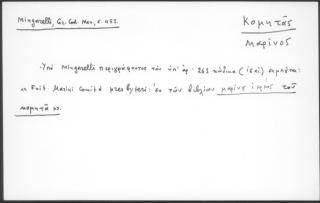 Mingarelli, Gr. Cod. Nan., σ. 453.
Κομητᾶς
Μαρίνος
Ὑπὸ Mingarelli περιγράφοντος τὸν ὑπ' ἀρ. 263 κώδικα (ἐκεῖ)
« Fuit Marini Comitâ presbyteri: ἐκ τῶν βιβλίων μαρίνου ἱερέως τοῦ
κομητᾶ